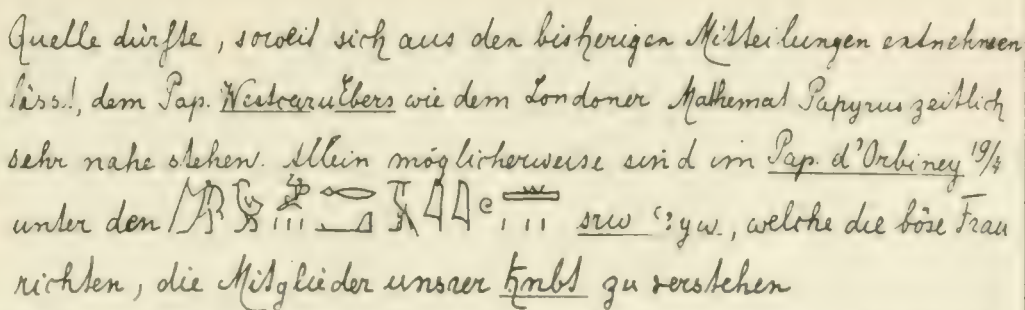 Quelle dürfte, soweit sich aus den bisherigen Mitteilungen entnehmen
lässt, dem Pap. Westcar u Ebers wie dem Londoner Mathemat Papyrus zeitlich
sehr nahe stehen. Allein möglicherweise sind im Pap. d'Orbiney 19/4
unter den srw ꜥꜣyw, welche die böse Frau
richten, die Mitglieder unsrer ḳnbt zu verstehen